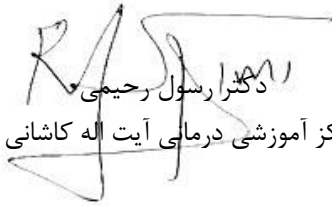 دکتر رسول رحیمی
کز آموزشی درمانی آیت اله کاشانی